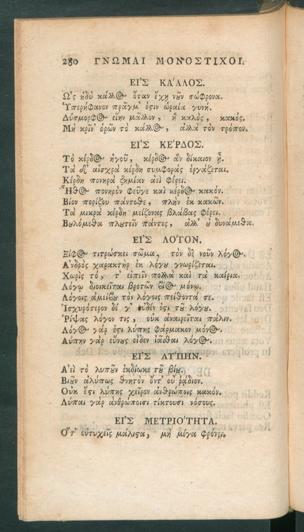 280 ΓΝΩΜΑΙ ΜΟΝΟΣΤΙΧΟΙ.
ΕΙΣ ΚΑΛΛΟΣ.
Ὡς ἡδὺ κάλλος ὅταν ἔχῃ νοῦν σώφρονα.
Ὑπερήφανον πρᾶγμ' ἐστιν ὡραία γυνή.
Δύσμορφος εἴην μᾶλλον, ἢ καλὸς, κακός.
Μὴ κρῖν' ὁρῶν τὸ κάλλος, ἀλλὰ τὸν τρόπον.
ΕΙΣ ΚΕΡΔΟΣ.
Τὸ κέρδος ἡγοῦ, κέρδος ἂν δίκαιον ᾖ.
Τὰ δ' αἰσχρὰ κέρδη συμφορὰς ἐργάζεται.
Κέρδη πονηρὰ ζημίαν ἀεὶ φέρει.
Ἦθος πονηρὸν φεῦγε καὶ κέρδος κακόν.
Βίον πορίζου πάντοθε, πλὴν ἐκ κακῶν.
Τὰ μικρὰ κέρδη μείζονας βλάβας φέρει.
Βουλόμεθα πλουτεῖν πάντες, ἀλλ' οὐ δυνάμεθα.
ΕΙΣ ΛΟΓΟΝ.
Ξίφος τιτρώσκει σῶμα, τὸν δὲ νοῦν λόγος.
Ἀνδρὸς χαρακτὴρ ἐκ λόγου γνωρίζεται.
Χωρὶς τό, τ' εἰπεῖν πολλὰ καὶ τὰ καίρια.
Λόγῳ διοικεῖται βροτῶν βίος μόνῳ.
Λόγοις ἀμείβου τὸν λόγοις πείθοντά σε.
Ἰσχυρότερον δέ γ' οὐδέν ἐστι τοῦ λόγου.
Ῥίψας λόγον τις, οὐκ ἀναιρεῖται πάλιν.
Λόγος γάρ ἐστι λύπης φάρμακον μόνος.
Λύπην γὰρ εὔνους οἶδεν ἰᾶσθαι λόγος.
ΕΙΣ ΛΥΠΗΝ.
Ἀεὶ τὸ λυποῦν ἐκδίωκε τοῦ βίου.
Βιοῦν ἀλύπως θνητὸν ὄντ' οὐ ῥᾴδιον.
Οὐκ ἔστι λύπης χεῖρον ἀνθρώποις κακόν.
Λῦπαι γὰρ ἀνθρώποισι τίκτουσι νόσους.
ΕΙΣ ΜΕΤΡΙΟΤΗΤΑ.
Ὅτ' εὐτυχεῖς μάλιστα, μὴ μέγα φρόνει.